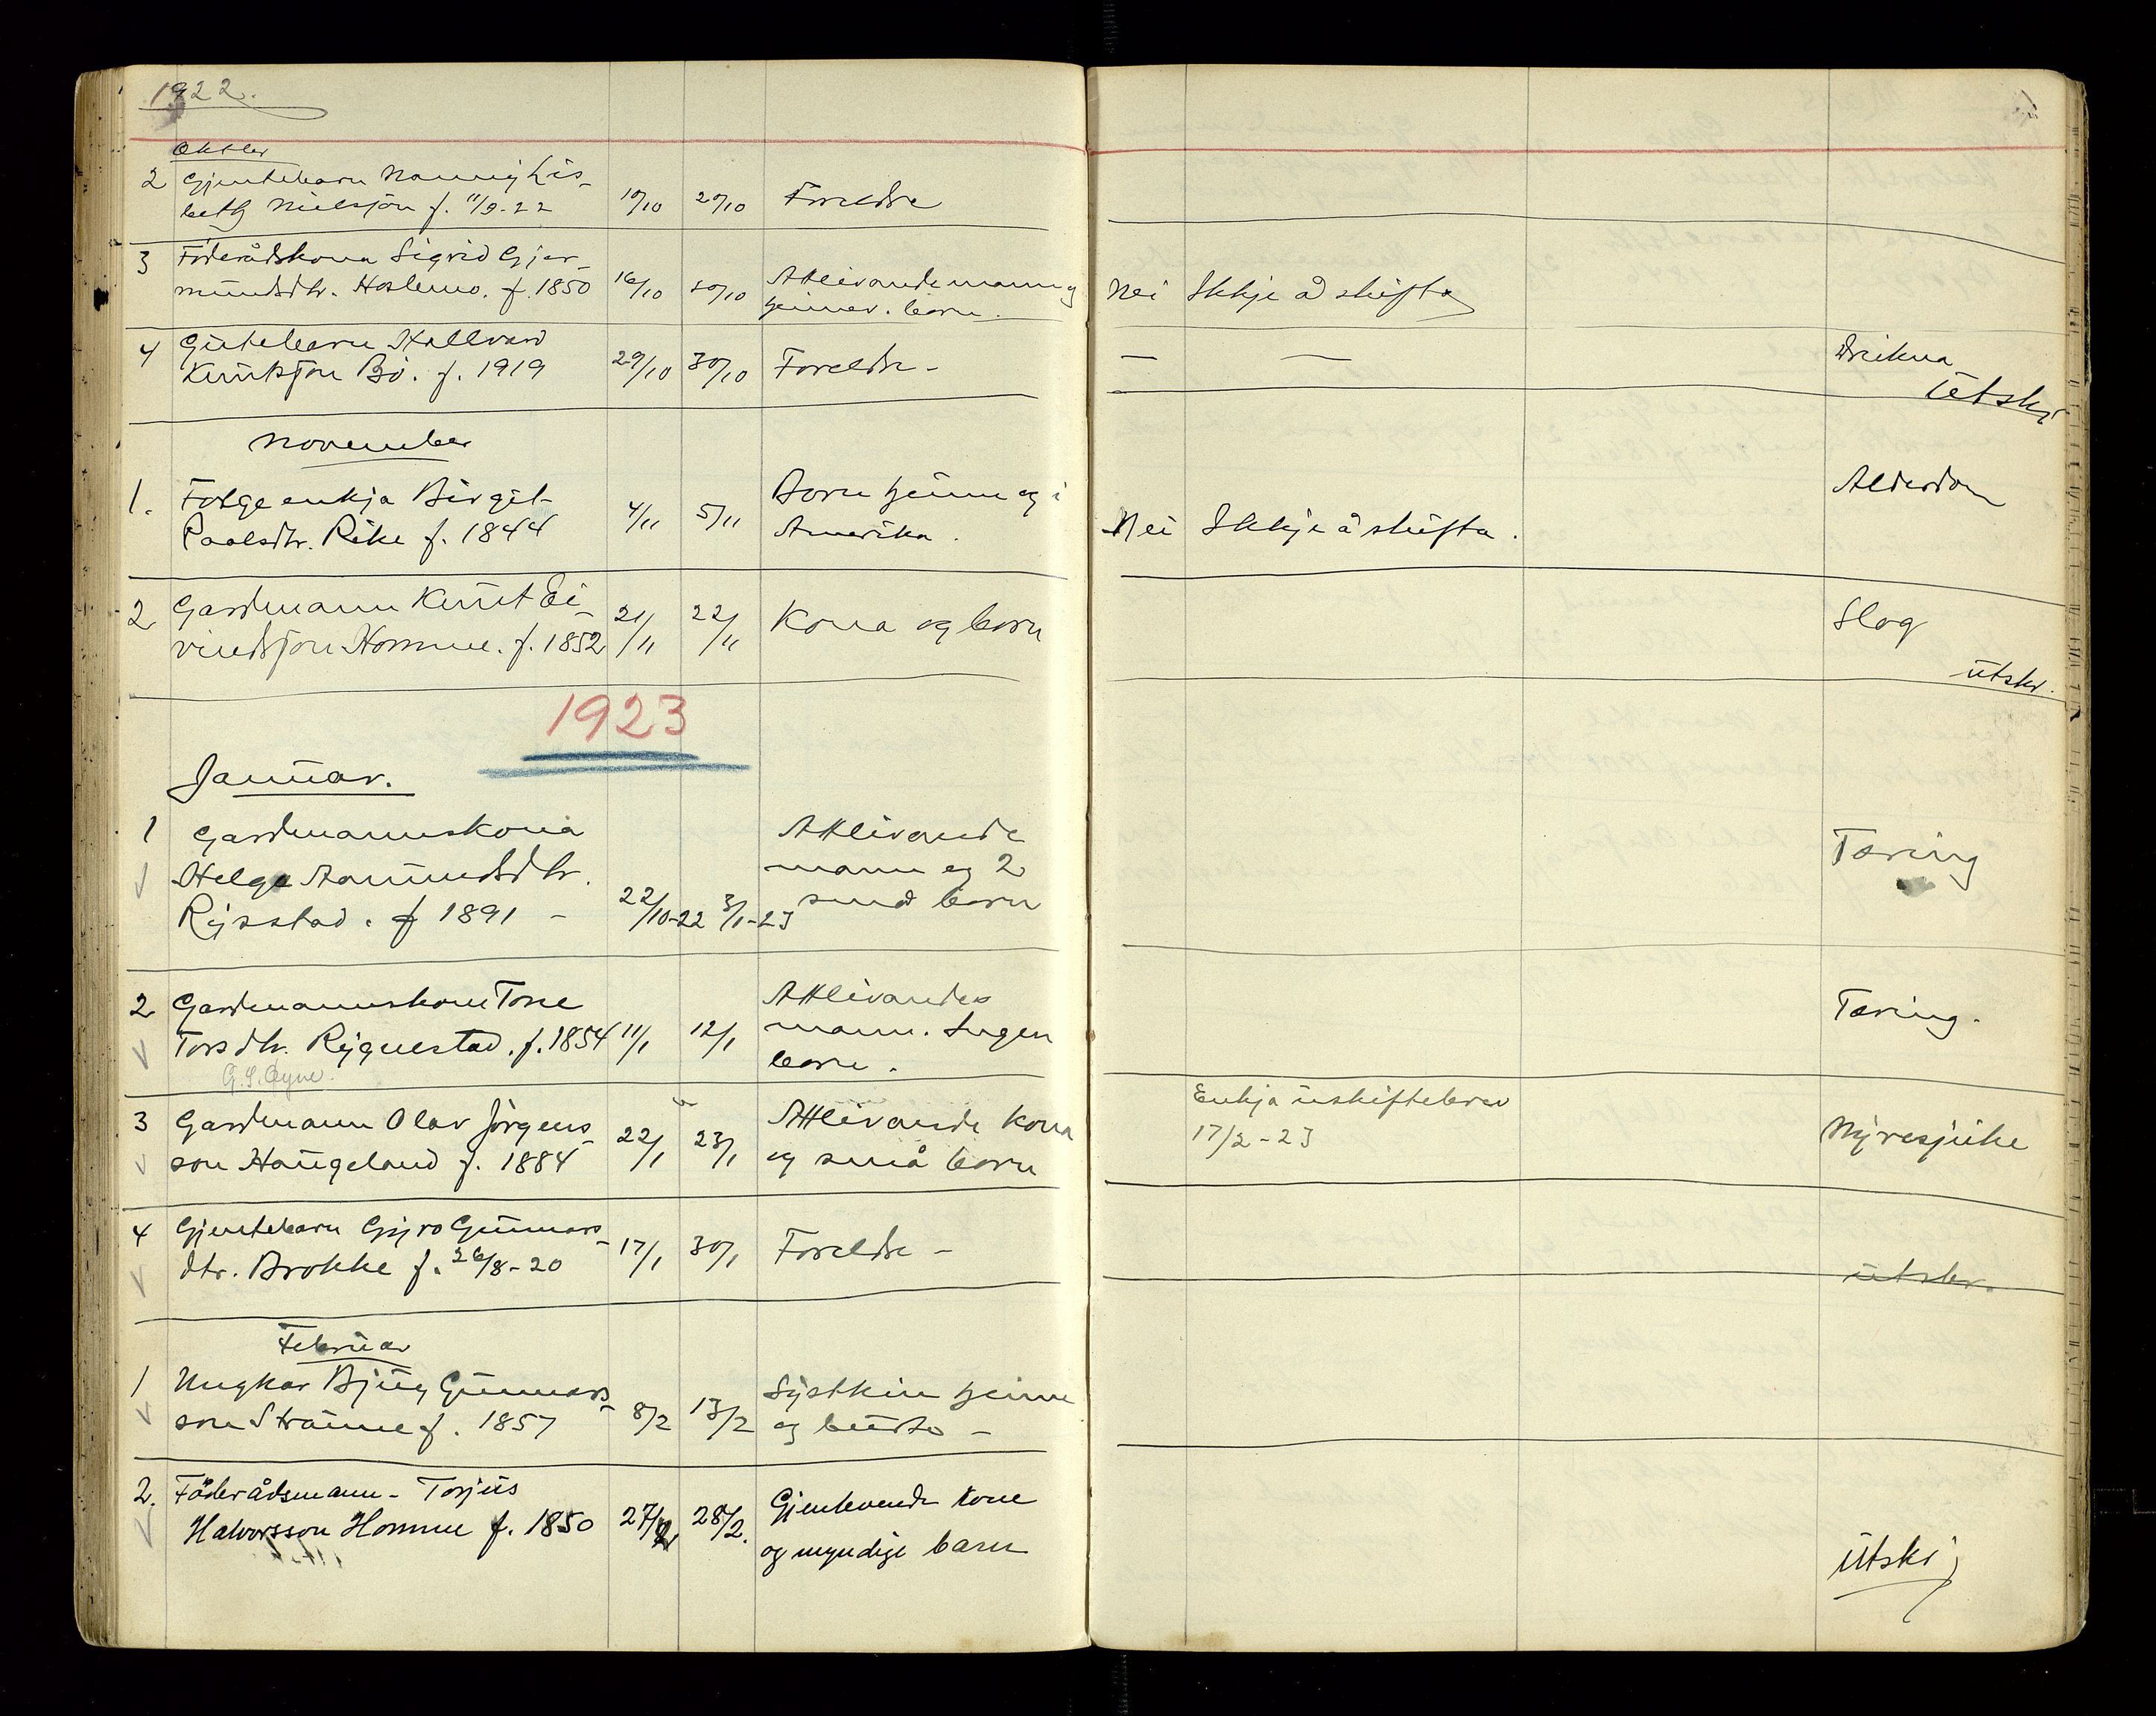 1922.
Oktber
2 Gjentebarn Nanny Lis-
beth Nielsjon f. 11/9-22 10/10 20/10 Foreldre
3 Föderådskona Sigrid Gjer-
mundsdtr. Hoslemo. f. 1850 16/10 20/10 Attlivande mann og
Nei Ikkje å skifta
4 Gutebarn Hallvard
Knutsson Bö. f. 1919 29/10 30/10 Foreldre -
— — Drukna
utskr
November
1. Folgeenkja Birgit
Paalsdtr. Rike f. 1844 4/11 5/11 Born heime og i
Amerika.
Nei Ikkje å skifta. Alderdom
2 Gardmann Knut Ei-
vindsson Homme. f. 1852 21/11 22/11 Kona og born
Slag
utskr.
1923
Januar.
1 Gardmannskona
Helga Aamundsdtr.
Rysstad. f 1891 - 22/10-22 3/1-23
Attlivande
mann og 2
små born
Tæring
2 Gardmannskone Tone
Torsdtr. Rygnestad. f. 1854 11/1 12/1
Attlivandes
mann. Ingen
born.
Tæring.
3 Gardmann Olav Jörgens-
son Haugeland f. 1884 22/1 23/1
Attlivande kona
og små born
Enkja uskiftebrev
17/2-23
Nyresjuke
4 Gjentebarn Gyro Gunnars-
dtr. Brokke f. 26/8-20 17/1 30/1 Foreldre -
utskr.
Februar
1 Ungkar Bjug Gunnars-
son Straume f. 1857 8/2 13/2
Systkin heime
og burte -
2. Föderådsmann - Torjus
Halvorsson Homme f. 1850 27/2 28/2.
Gjenlevende kone
og myndige barn
utskr